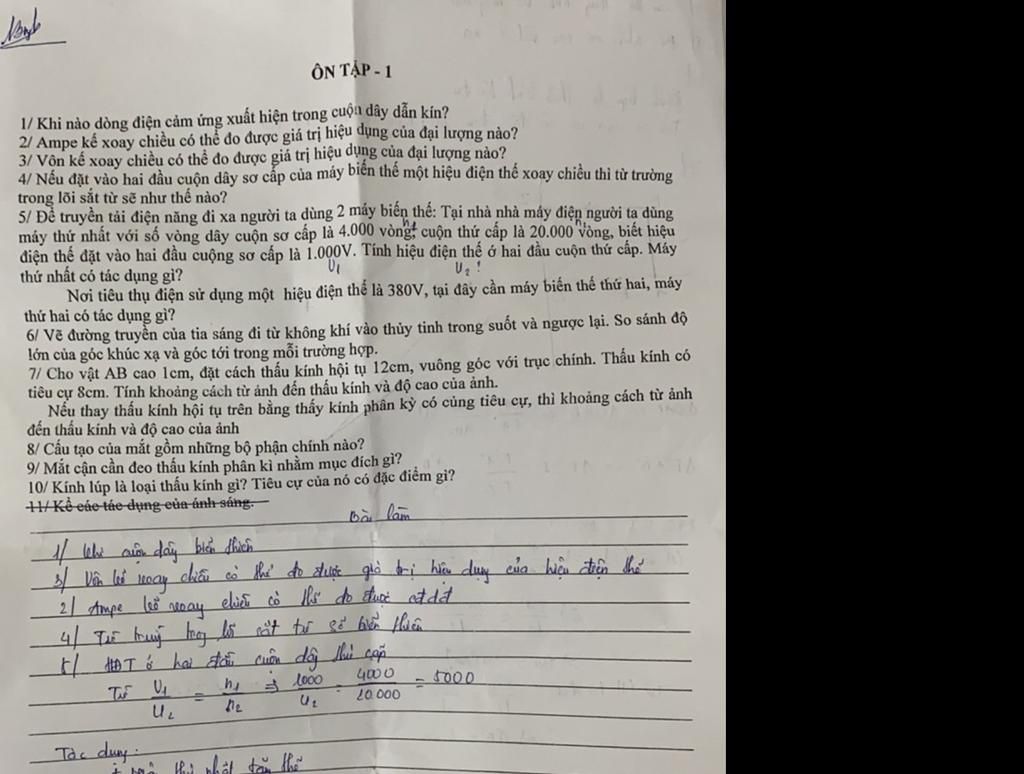 ÔN TẬP - 1
1/ Khi nào dòng điện cảm ứng xuất hiện trong cuộn dây dẫn kín?
2/ Ampe kế xoay chiều có thể đo được giá trị hiệu dụng của đại lượng nào?
3/ Vôn kế xoay chiều có thể đo được giá trị hiệu dụng của đại lượng nào?
4/ Nếu đặt vào hai đầu cuộn dây sơ cấp của máy biến thế một hiệu điện thế xoay chiều thì từ trường
trong lõi sắt từ sẽ như thế nào?
5/ Để truyền tải điện năng đi xa người ta dùng 2 máy biến thế: Tại nhà nhà máy điện người ta dùng
máy thứ nhất với số vòng dây cuộn sơ cấp là 4.000 vòng, cuộn thứ cấp là 20.000 vòng, biết hiệu
điện thế đặt vào hai đầu cuộng sơ cấp là 1.000V. Tính hiệu điện thế ớ hai đầu cuộn thứ cấp. Máy
thứ nhất có tác dụng gì?
U₁ U₂ ?
Nơi tiêu thụ điện sử dụng một hiệu điện thế là 380V, tại đây cần máy biến thế thứ hai, máy
thứ hai có tác dụng gì?
6/ Vẽ đường truyền của tia sáng đi từ không khí vào thủy tinh trong suốt và ngược lại. So sánh độ
lớn của góc khúc xạ và góc tới trong mỗi trường hợp.
7/ Cho vật AB cao 1cm, đặt cách thấu kính hội tụ 12cm, vuông góc với trục chính. Thấu kính có
tiêu cự 8cm. Tính khoảng cách từ ảnh đến thấu kính và độ cao của ảnh.
Nếu thay thấu kính hội tụ trên bằng thấy kính phân kỳ có củng tiêu cự, thì khoảng cách từ ảnh
đến thấu kính và độ cao của ảnh
8/ Cấu tạo của mắt gồm những bộ phận chính nào?
9/ Mắt cận cần đeo thấu kính phân kì nhằm mục đích gì?
10/ Kính lúp là loại thấu kính gì? Tiêu cự của nó có đặc điểm gì?
11/ Kể các tác dụng của ánh sáng.
Bài làm
1/ Khi cuộn dây biến thiên
3/ Vôn kế xoay chiều có thể đo được giá trị hiệu dụng của hiệu điện thế
2/ Ampe kế xoay chiều có thể đo được cđdđ
4/ Từ trường trong lõi sắt từ sẽ biến thiên
5/ HĐT ở hai đầu cuộn dây thứ cấp
Từ U₁/U₂ = n₁/n₂ ⇒ 1000/U₂ = 4000/20.000 = 5000
Tác dụng:
+ Máy thứ nhất tăng thế